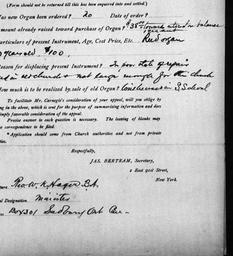 (Form should not to returned till this has been determined.)
as new Organ been ordered? no Date of order?
mount already raised toward purchase of Organ? $35
articulars of present Instrument, Age, Cost Price, Etc. Reed organ
years old. $100.
eason for displacing present Instrument? In poor state of repair
and is not large enough for the church
ow much is to be realized by sale of old Organ? School
To facilitate Mr. Carnegie's consideration of your appeal, will you oblige
ing in the above, which is sent for the purpose of summarizing information and does
imply favorable consideration of the appeal.
Precise answer to each question is necessary. The leaving of blanks may
correspondence to be filed.
Application should come from Church authorities and not from private
Respectfully,
JAS. BERTRAM, Secretary,
2 East 91st Street,
New York.
Geo. W. K. Hagar B.A.
ial Designation. Minister
Box 301 Sudbury Ont